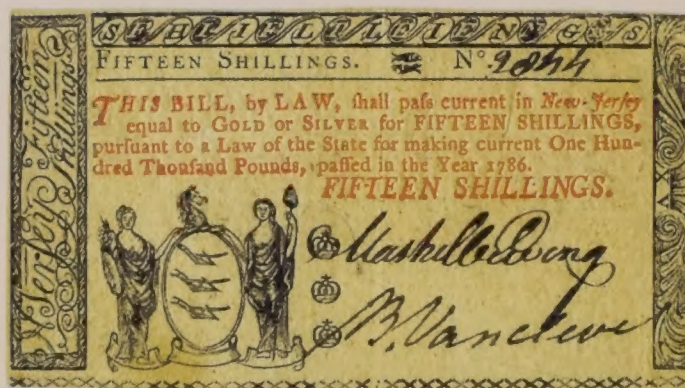 FIFTEEN SHILLINGS. Nº 2844
THIS BILL, by LAW, ſhall paſs current in New-Jerſey
equal to GOLD or SILVER for FIFTEEN SHILLINGS,
purſuant to a Law of the State for making current One Hun-
dred Thouſand Pounds, paſſed in the Year 1786.
FIFTEEN SHILLINGS.
Maskell Ewing
B. Vancleve
Jerſey Fifteen
Shillings.